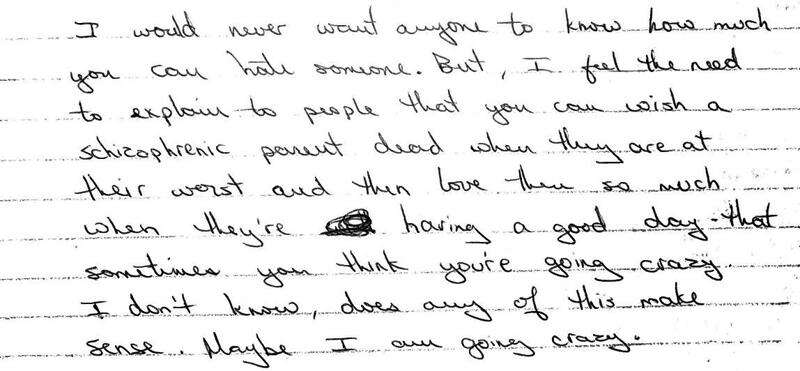 I would never want anyone to know how much
you can hate someone. But, I feel the need
to explain to people that you can wish a
schizophrenic parent dead when they are at
their worst and then love them so much
when they're having a good day - that
sometimes you think you're going crazy
I don't know, does any of this make
sense. Maybe I am going crazy.